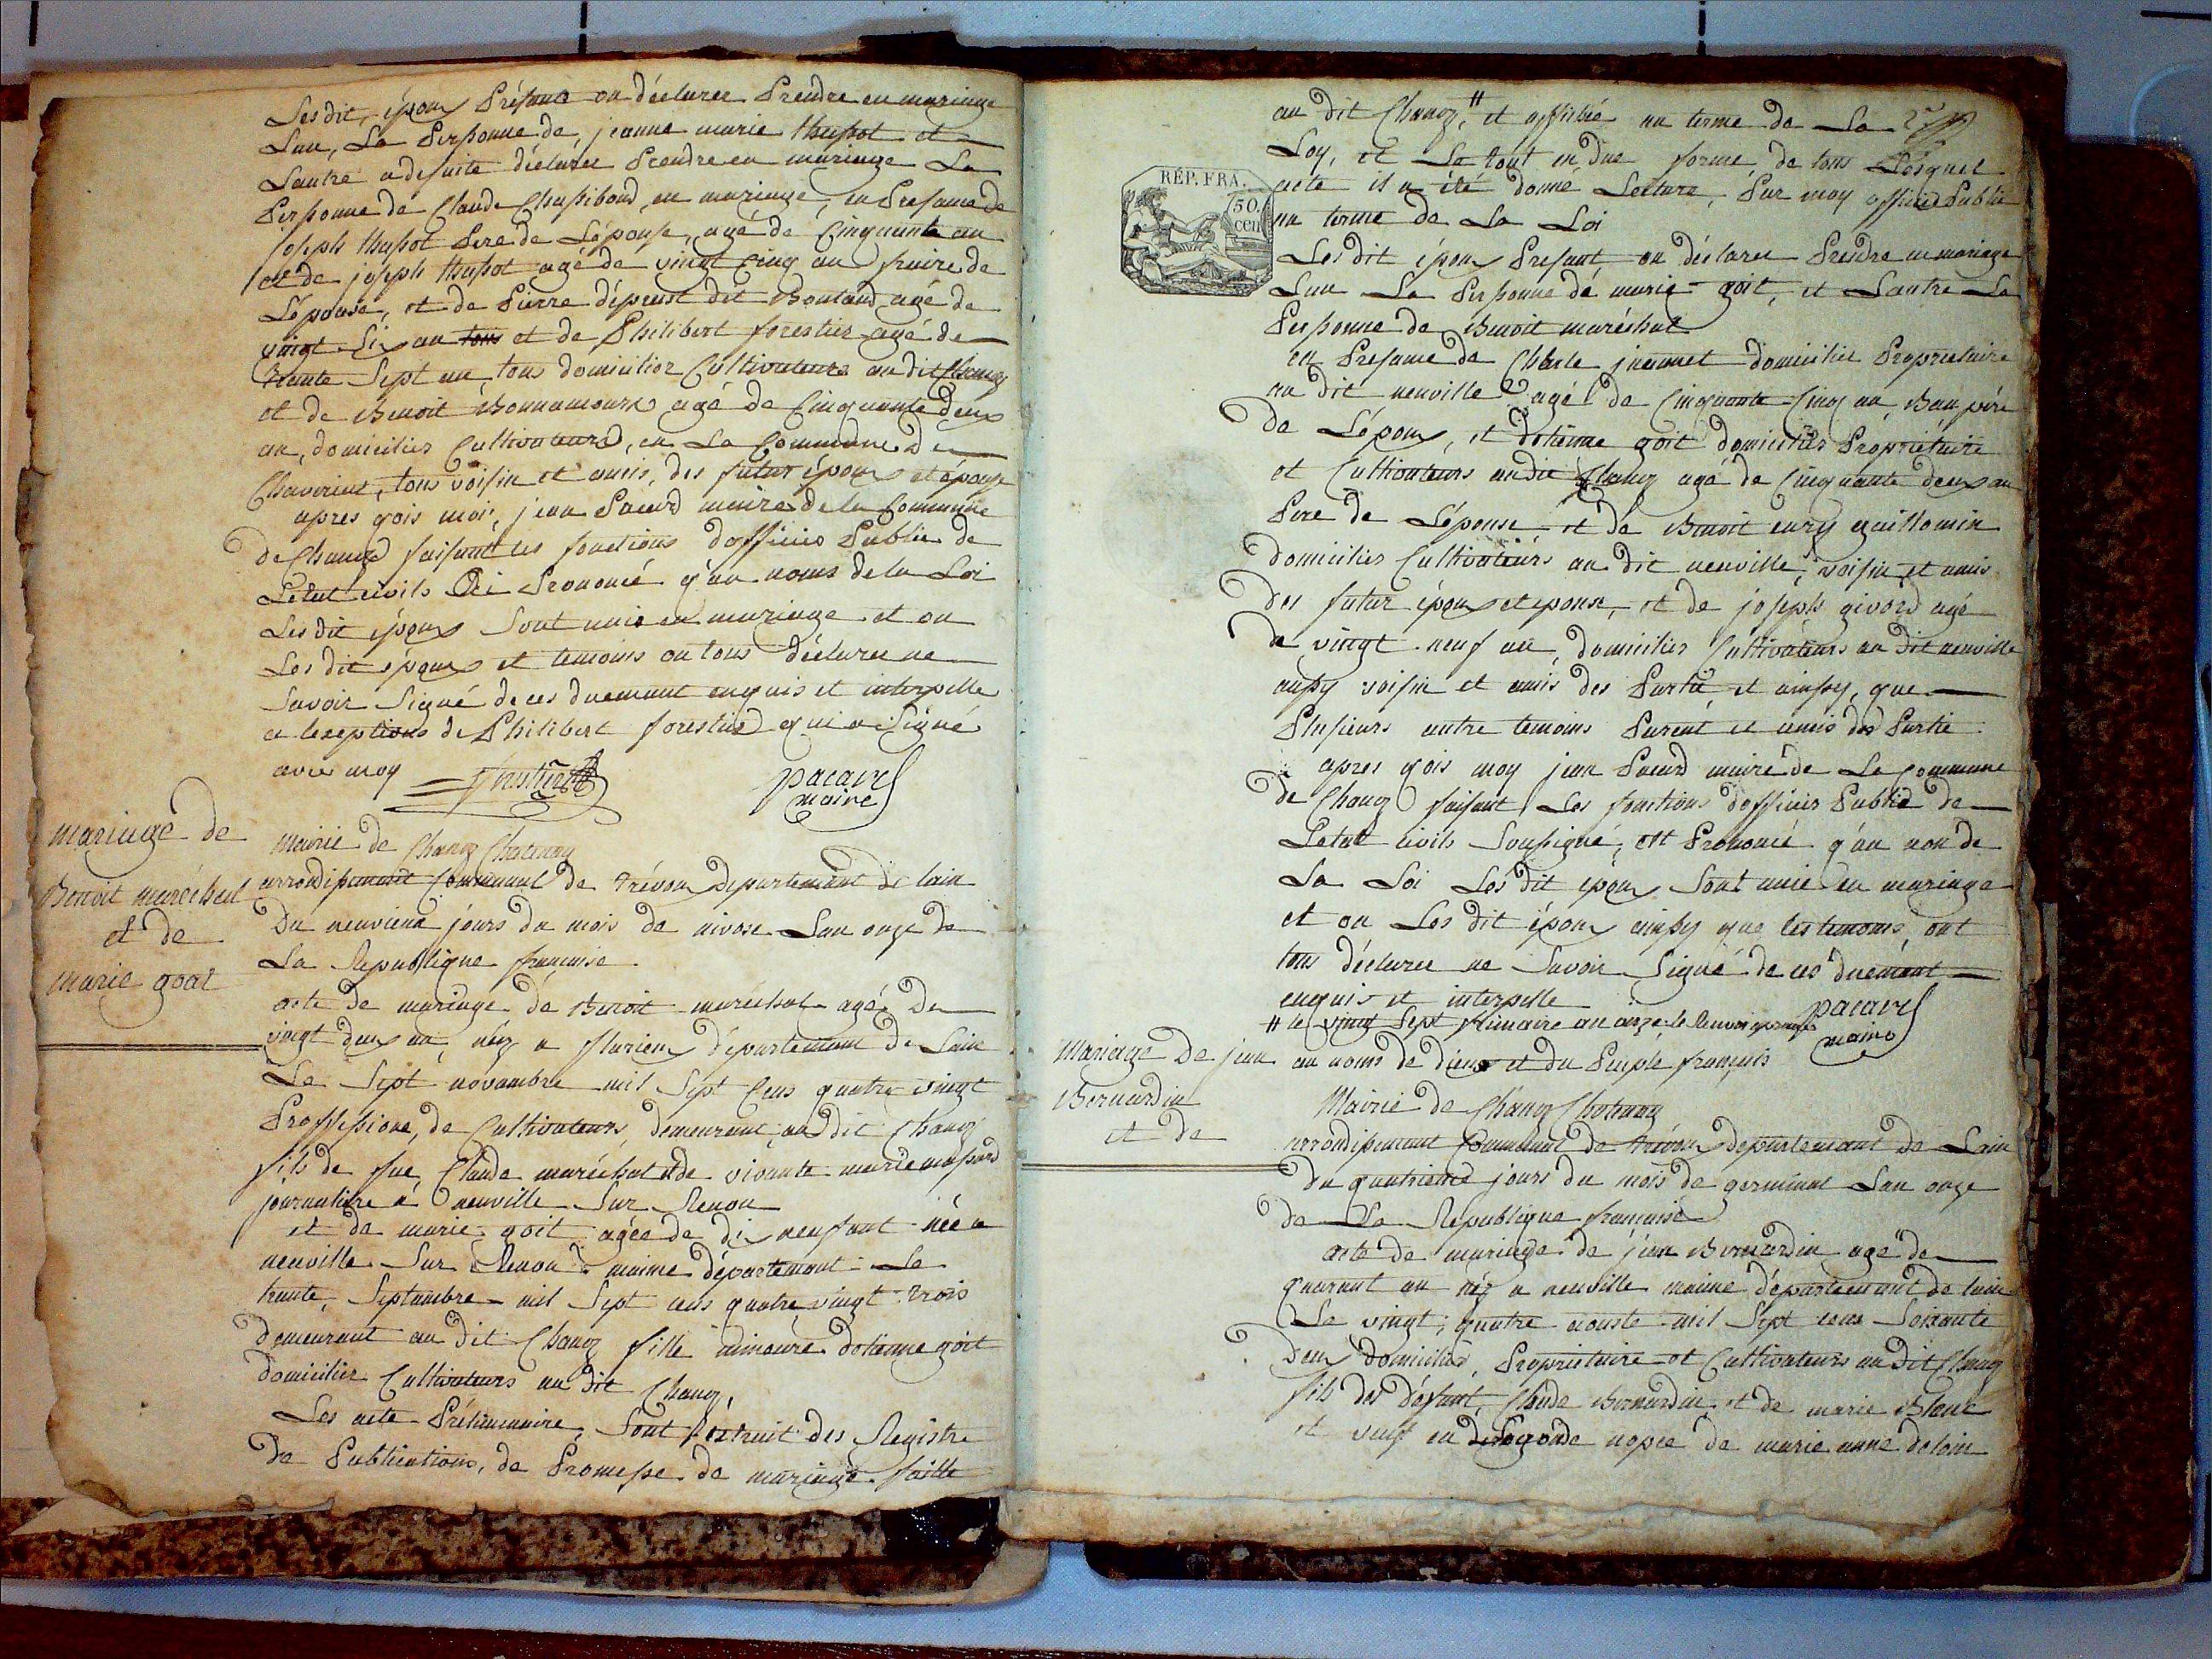 Lesdit époux Présant on déclarer Prendre en mariage
Lun, La Personne de, jeanne marie thassot et
Lautre adesuite déclarer Prendre en mariage La
Personne de Claude Chassiboud, en mariage, en Presance de
joseph thassot Pere de Lépouse, agé de Cinquante an
et de joseph thassot agé de vingt Cinq an fraire de
Lépouse, et de Pierre déprust dit Bouland agé de
vingt Six an tous et de Philibert forestier agé de
trante Sept an, tous domicilier Cultivateurs au dit Chanoz
et de Benoit Bonnamours agé de Cinquante deux
an, domicilies Cultivateurs, en La Commune de
Chaveriat, tous voisin et amis, des futur époux et épouse
apres qois moi, jean Pacard maire de la Commune
de Chanoz faisant les fonctions dofficies Public de
Letat civils Prononcé q'au noms de la Loi
Les dit époux Sont unis en mariage et on
Les dit époux et temoins on tous déclarer ne
Savoir Signé de ces duemant enquis et interpelle
a lexeptions de Philibert forestier qui a Signé
avec moy forestier pacard
maire
mariage de
Benoit maréchal
et de
marie goat
Mairie de Chanoz Chatenay
arrondissemant Communal de trévoux departemant de lain
Du neuvieme jours du mois de nivose Lan onze de
La Republique francaise
acte de mariage de Benoit maréchal agé De
vingt deux an, néz a flurieux département de Lain
Le Sept novambre mil Sept Cens quatre vingt
Proffessione, de Cultivateurs, demeurant au dit Chanoz
fils de fue Claude maréchal et de vivante marie massard
journaliere a neuville Sur Renon
et de marie goit agée de dix neuf ant née a
neuville Sur Renon maime département Le
trante, Septambre mil Sept cens quatre vingt trois
demeurant au dit Chanoz fille mineure detienne goit
domicilier Cultivateurs au dit Chanoz,
Les acte Préliminaire, Sont Lextrait des Registre
De Publications, de Promesse de mariage faitte
au dit Chanoz, # et affichée au terme de La
Loy, et Le tout en due forme, de tous Lésquel
acte il a été donné Lecture, Par moy officier Public
au terme de La Loi
RÉP. FRA.
50.
cen
Les dit époux Présant, on déclarer Prendre en mariage
Lun La Personne de marie goit, et Lautre La
Personne de Benoit maréchal
en Presance de Charle jeannet domicilier Proprietaire
au dit neuville agé de Cinquante Cinq an, Bau pére
De Lépoux, et detienne goit domicilies Propriétaire
et Cultivateurs au dit Chanoz agé de Cinquante deux an
Pere de Lépouse et de Benoit eury guillomin
domicilies Cultivateurs au dit neuville, voisin et amis
Des futur époux et epouse, et de joseph givord agé
de vingt neuf an, domicilies Cultivateurs au dit neuville
aussy voisin et amis des Partie et ainssy, que
Plusieurs autre temoins Parent et amis des Partie
apres qois moy jean Pacard maire de La Commune
de Chanoz faisant Les fonctions dofficier Public de
Letat civils Soussigné, ett Prononcé q'au non de
La Loi Les dit epoux Sont unie en mariage
et on Les dit époux ainssy que les temoins, ont
tous déclarer ne Savoir Signé de ces duemant
enquis et interpelle pacard
maire
# le vingt Sept frimaire an onze
Mariage De jean
Bernardin
et de
au noms de dieux et du Peuple français
Mairie de Chanoz Chatenay
arrondissemant Communal de trévoux departemant de Lain
Du quatrieme jours du mois de germinal Lan onze
de La Republique francaise
acte de mariage de jean Bernardin agé de
quarant an néz a neuville maime départemant de lain
Le vingt, quatre aouste mil Sept cens Soixante
Deux domicilies, Proprietaire et Cultivateurs au dit Chanoz
fils des défunt, Claude Bernardin et de marie Blanc
et veuf en Segonde nopce de marie anne deloin